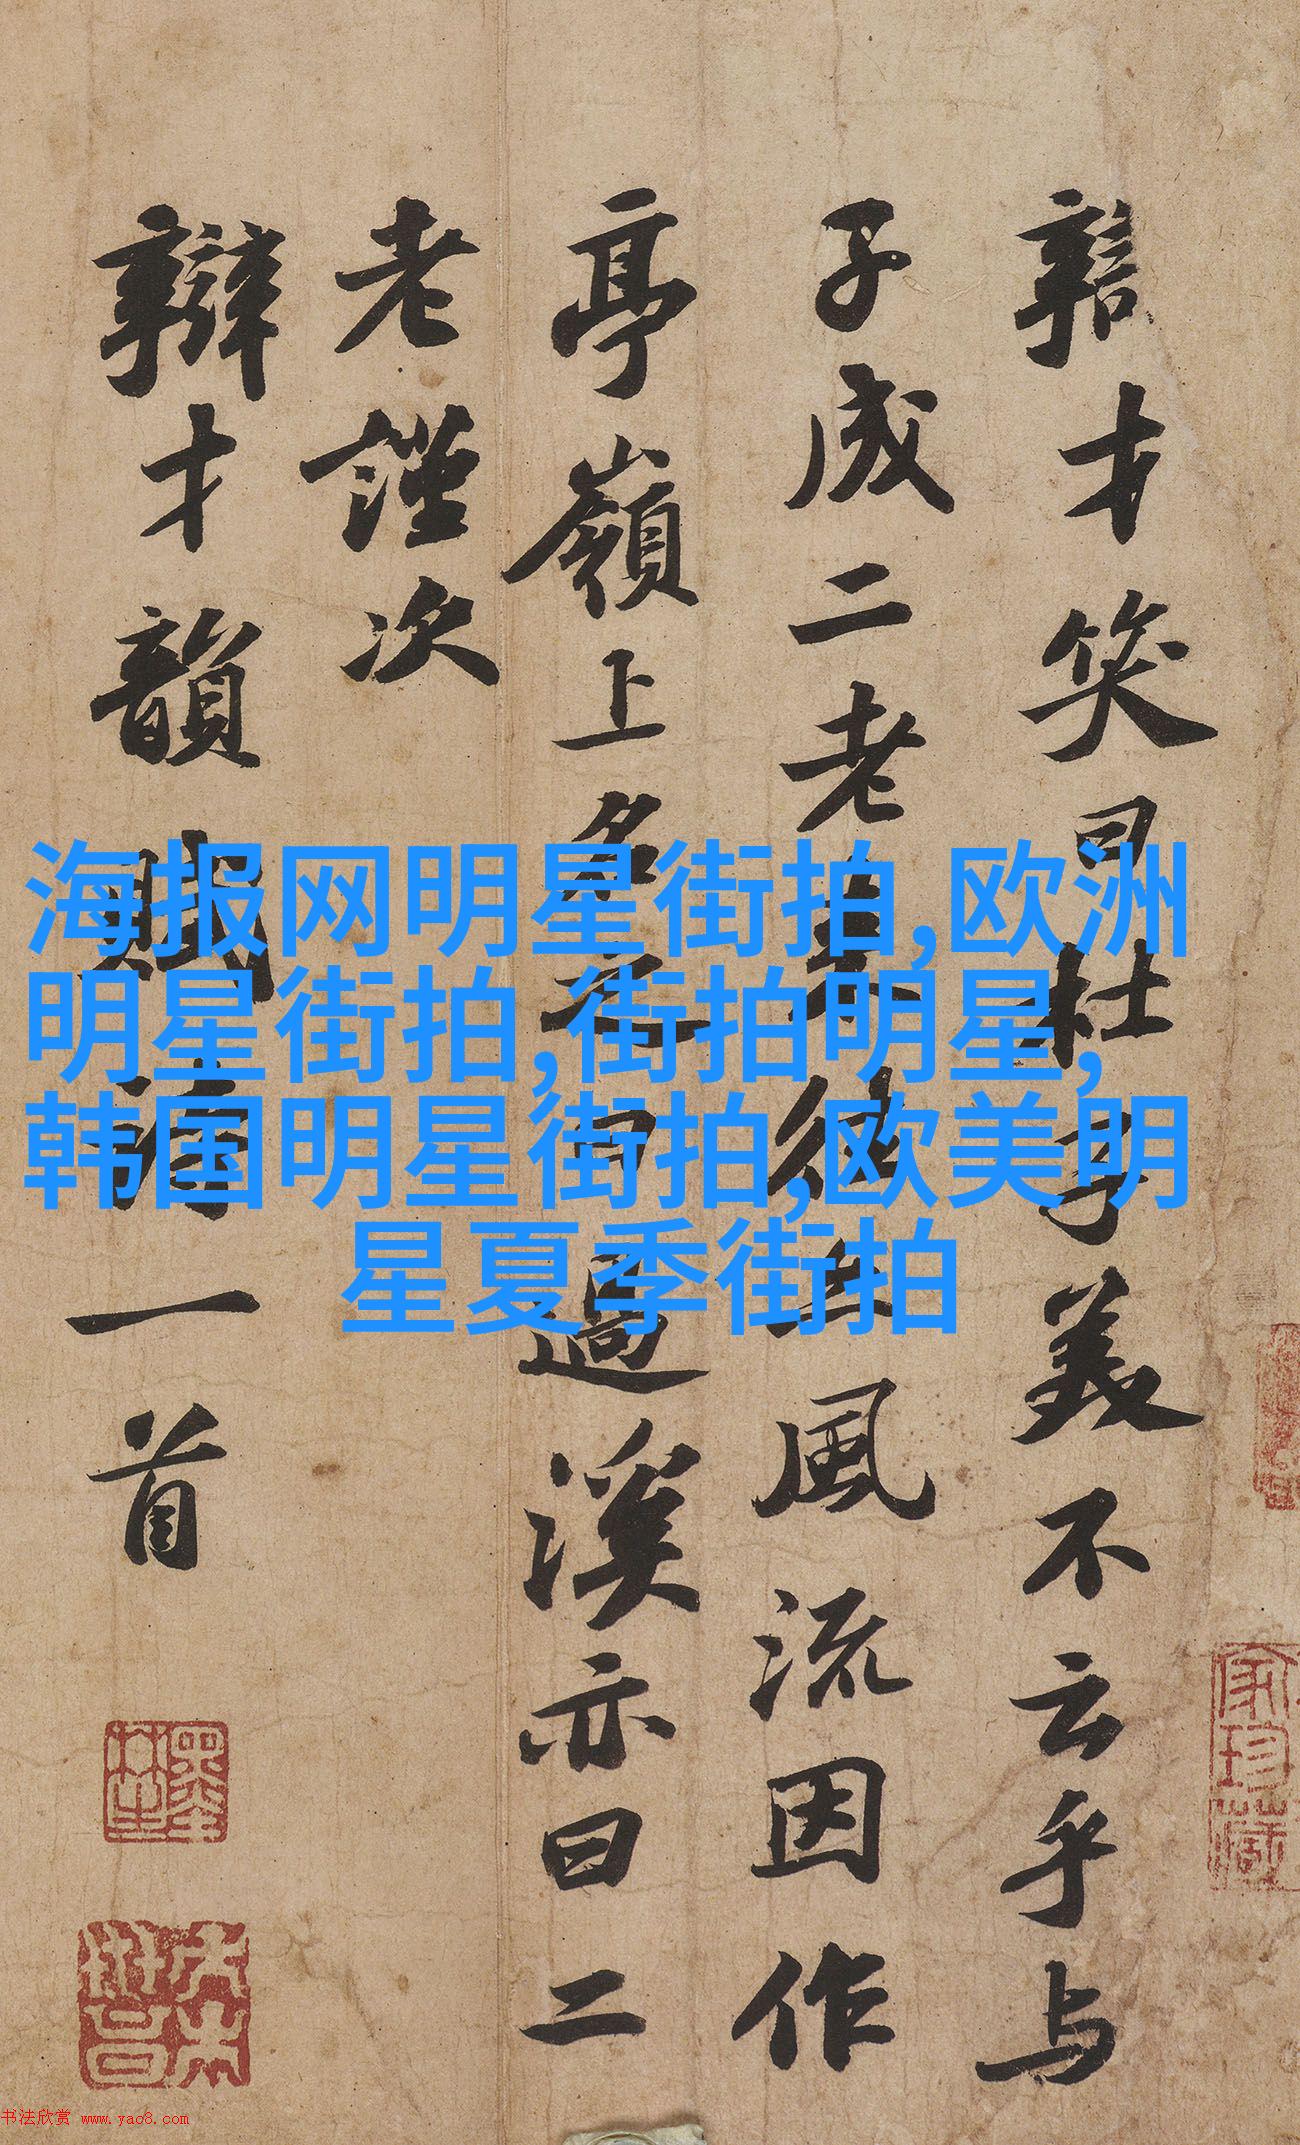 辯才笑曰杜子美不云乎与
子成二老来往亦風流因作
亭嶺上名之曰過溪亦曰二
老謹次
辯才韻賦詩一首
海报网明星街拍,欧洲
明星街拍,街拍明星,
韩国明星街拍,欧美明
星夏季街拍
家珍藏
书法欣赏 www.yac8.com